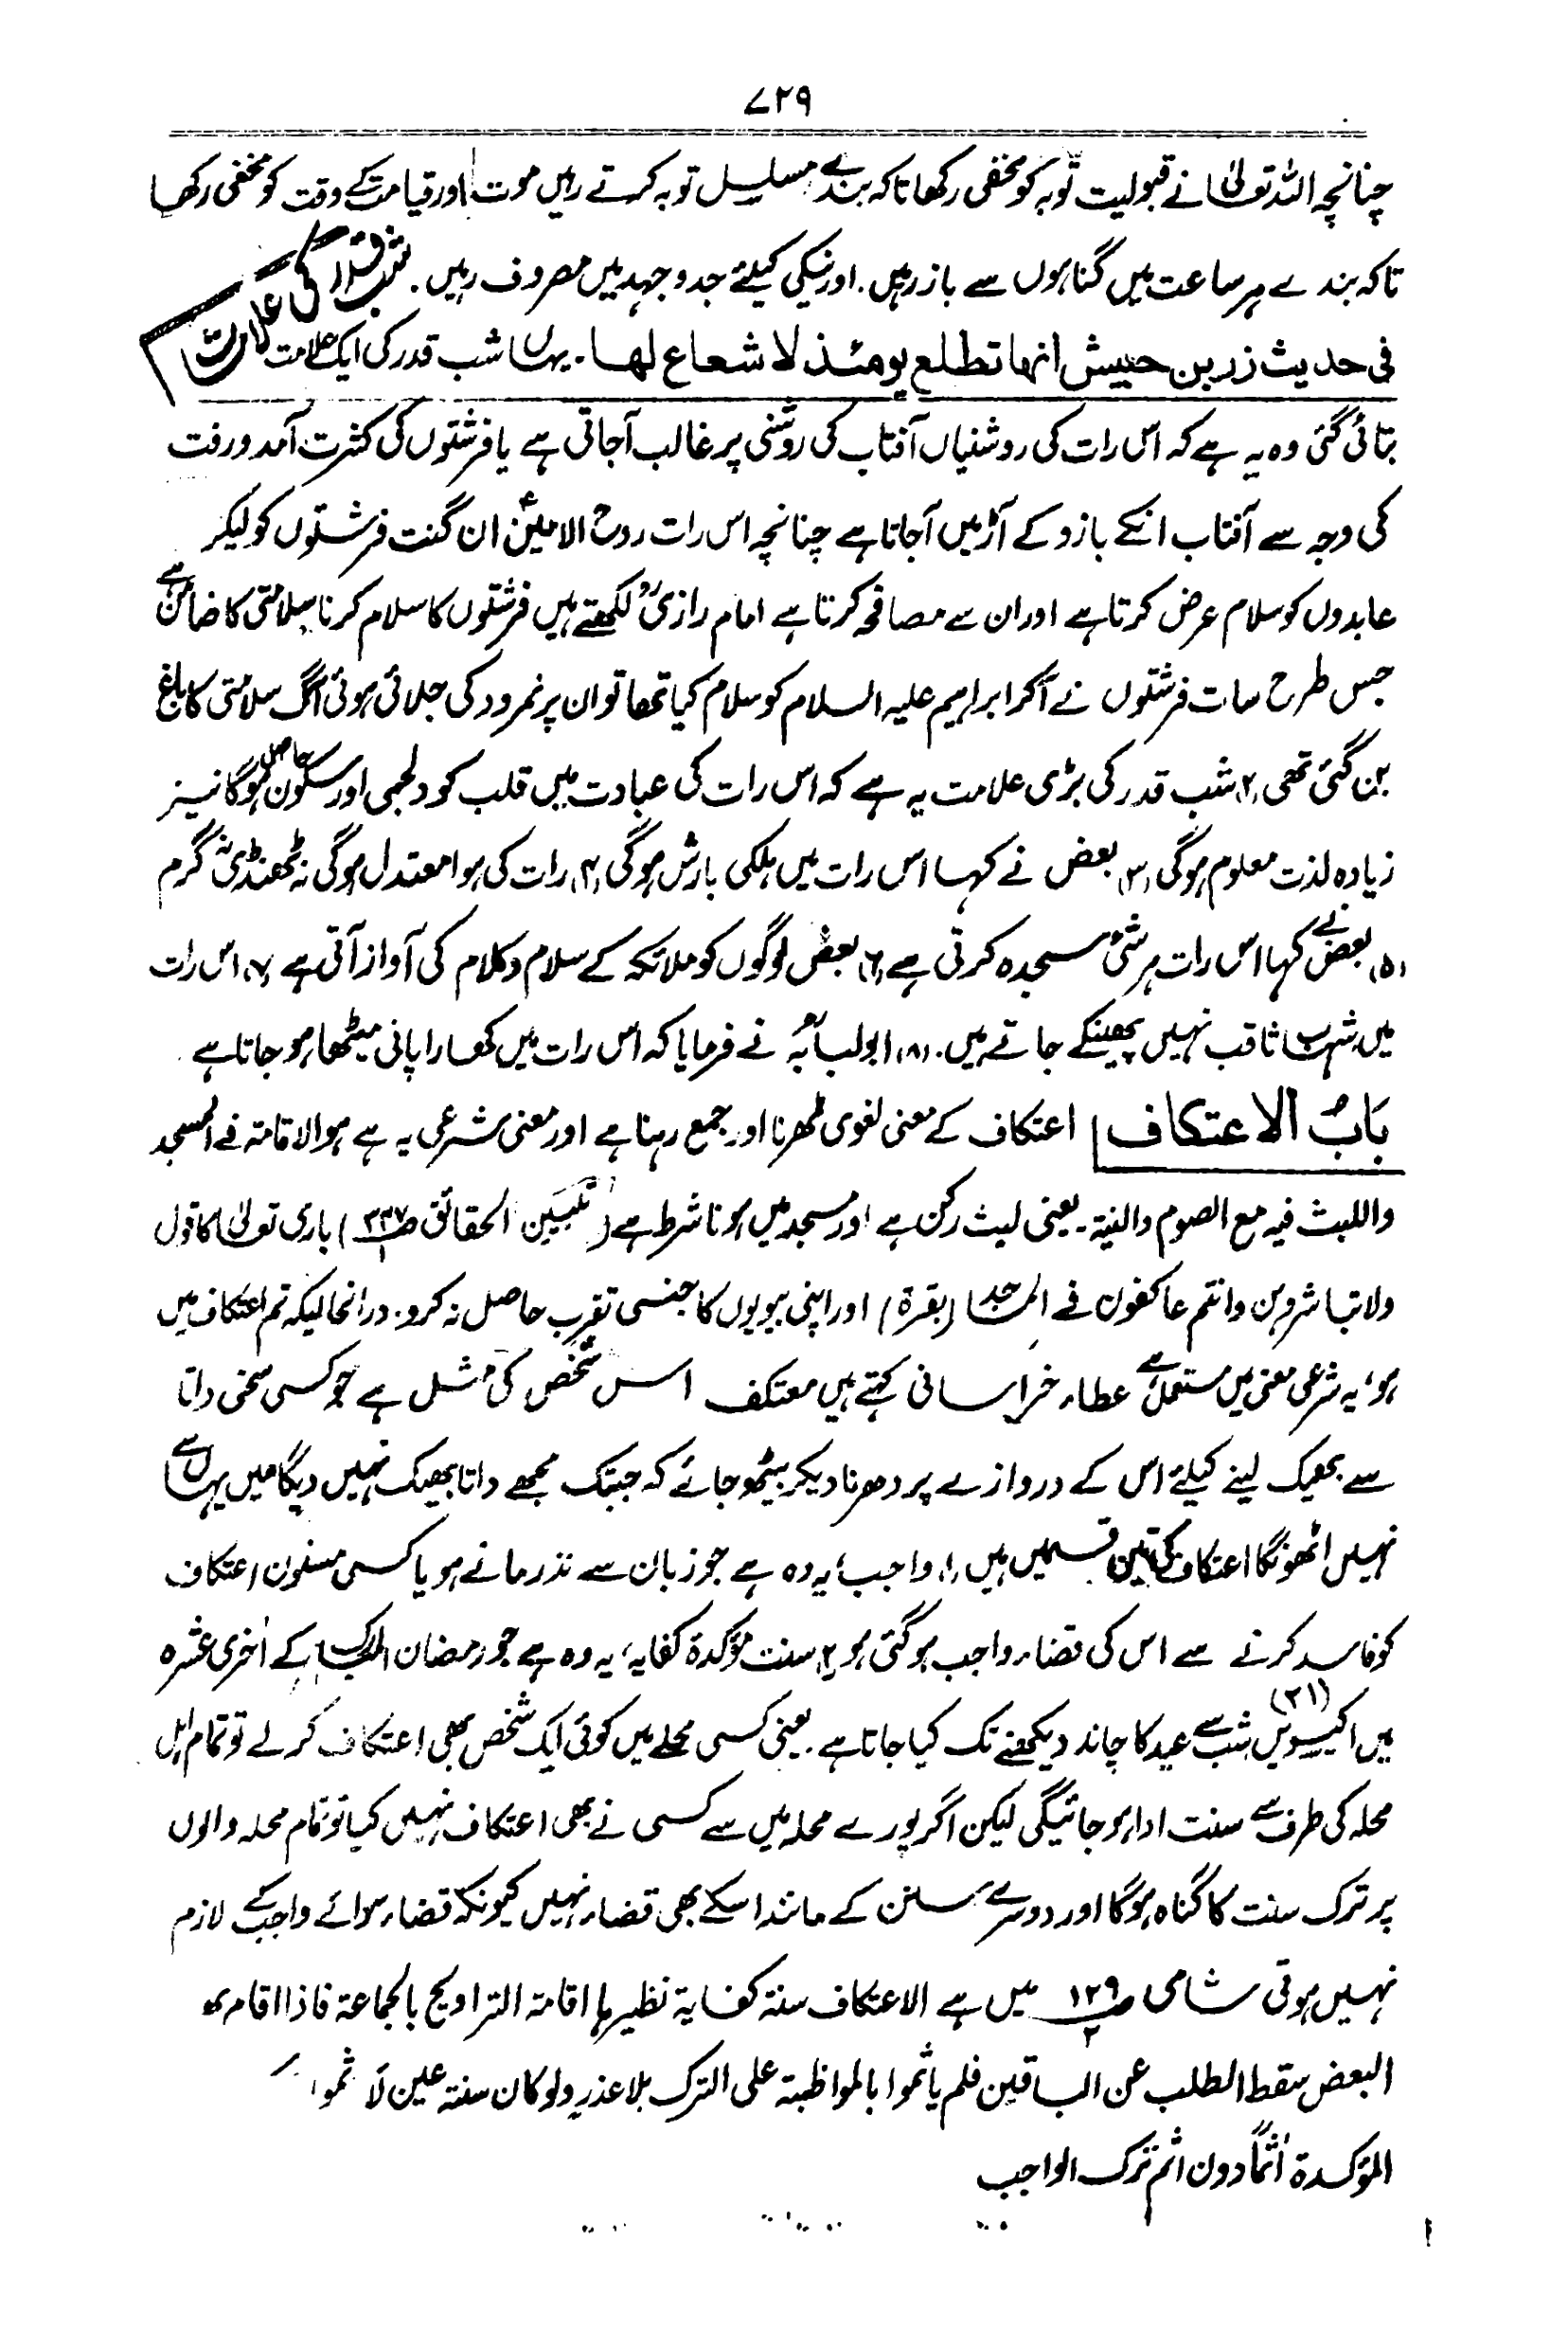 ۷۲۹
چنانچہ اللہ تعالیٰ نے قبولیت توبہ کو مخفی رکھا تاکہ بندے مسلسل توبہ کرتے رہیں موت اور قیامت کے وقت کو مخفی رکھا
تاکہ بندے ہر ساعت میں گناہوں سے باز رہیں . اور نیکی کیلئے جد و جہد میں مصروف رہیں . شب قدر کی علامت
فی حدیث زر بن حبیش انها تطلع یومئذ لا شعاع لها . یہاں شب قدر کی ایک علامت
بتائی گئی وہ یہ ہے کہ اس رات کی روشنیاں آفتاب کی روشنی پر غالب آجاتی ہے یا فرشتوں کی کثرت آمد ورفت
کی وجہ سے آفتاب انکے بازو کے آڑ میں آجاتا ہے چنانچہ اس رات روح الامینؑ ان گنت فرشتوں کو لیکر
عابدوں کو سلام عرض کرتا ہے اور ان سے مصافحہ کرتا ہے امام رازیؒ لکھتے ہیں فرشتوں کا سلام کرنا سلامتی کا ضامن ہے
جس طرح سات فرشتوں نے آکر ابراہیم علیہ السلام کو سلام کیا تھا تو ان پر نمرود کی جلائی ہوئی آگ سلامتی کا باغ
بن گئی تھی (۲) شب قدر کی بڑی علامت یہ ہے کہ اس رات کی عبادت میں قلب کو دلجمی اور سکون حاصل ہوگا نیز
زیادہ لذت معلوم ہوگی (۳) بعض نے کہا اس رات میں ہلکی بارش ہوگی (۴) رات کی ہوا معتدل ہوگی نہ ٹھنڈی نہ گرم
(۵) بعض نے کہا اس رات ہر شئ سجدہ کرتی ہے (۶) بعض لوگوں کو ملائکہ کے سلام وکلام کی آواز آتی ہے (۷) اس رات
میں شہاب ثاقب نہیں پھینکے جاتے ہیں . (۸) ابولبابہؓ نے فرمایا کہ اس رات میں کھارا پانی میٹھا ہو جاتا ہے .
بَابُ الاعتکاف اعتکاف کے معنی لغوی ٹھرنا اور جمع رہنا ہے اور معنی شرعی یہ ہے ہوالاقامۃ فے المسجد
واللبث فیہ مع الصوم والنیۃ . یعنی لبث رکن ہے اور مسجد میں ہونا شرط ہے (تبیین الحقائق ص۳۴۷ ج۱) باری تعالیٰ کا قول
ولا تباشروہن وانتم عاکفون فے المساجد (بقرۃ) اور اپنی بیویوں کا جنسی تقرب حاصل نہ کرو . درانحالیکہ تم اعتکاف میں
ہو، یہ شرعی معنی میں مستعمل ہے عطاء خراسانی کہتے ہیں معتکف اس شخص کی مثل ہے جو کسی سخی داتا
سے بھیک لینے کیلئے اس کے دروازے پر دھرنا دیکر بیٹھ جائے کہ جبتک مجھے داتا بھیک نہیں دیگا میں یہاں سے
نہیں اٹھونگا اعتکاف کی تین قسمیں ہیں (۱) واجب، یہ وہ ہے جو زبان سے نذر مانے ہو یا کسی مسنون اعتکاف
کو فاسد کرنے سے اس کی قضاء واجب ہوگئی ہو (۲) سنت مؤکدۃ کفایہ، یہ وہ ہے جو رمضان المبارک کے اٰخری عشرہ
میں اکیسویں (۲۱) شب سے عید کا چاند دیکھنے تک کیا جاتا ہے . یعنی کسی محلے میں کوئی ایک شخص بھی اعتکاف کرلے تو تمام اہل
محلہ کی طرف سے سنت ادا ہوجائیگی لیکن اگر پورے محلہ میں سے کسی نے بھی اعتکاف نہیں کیا تو تمام محلہ والوں
پر ترک سنت کا گناہ ہوگا اور دوسرے سنن کے مانند اسکے بھی قضاء نہیں کیونکہ قضاء سوائے واجب کے لازم
نہیں ہوتی شامی ص۱۲۹ ج۲ میں ہے الاعتکاف سنۃ کفایۃ نظیرہا اقامۃ التراویح بالجماعۃ فاذا اقام
البعض سقط الطلب عن الباقین فلم یاثموا بالمواظبۃ علی الترک بلا عذر ولو کان سنۃ عین لاثموا
المؤکدۃ اثماً دون اثم ترک الواجب